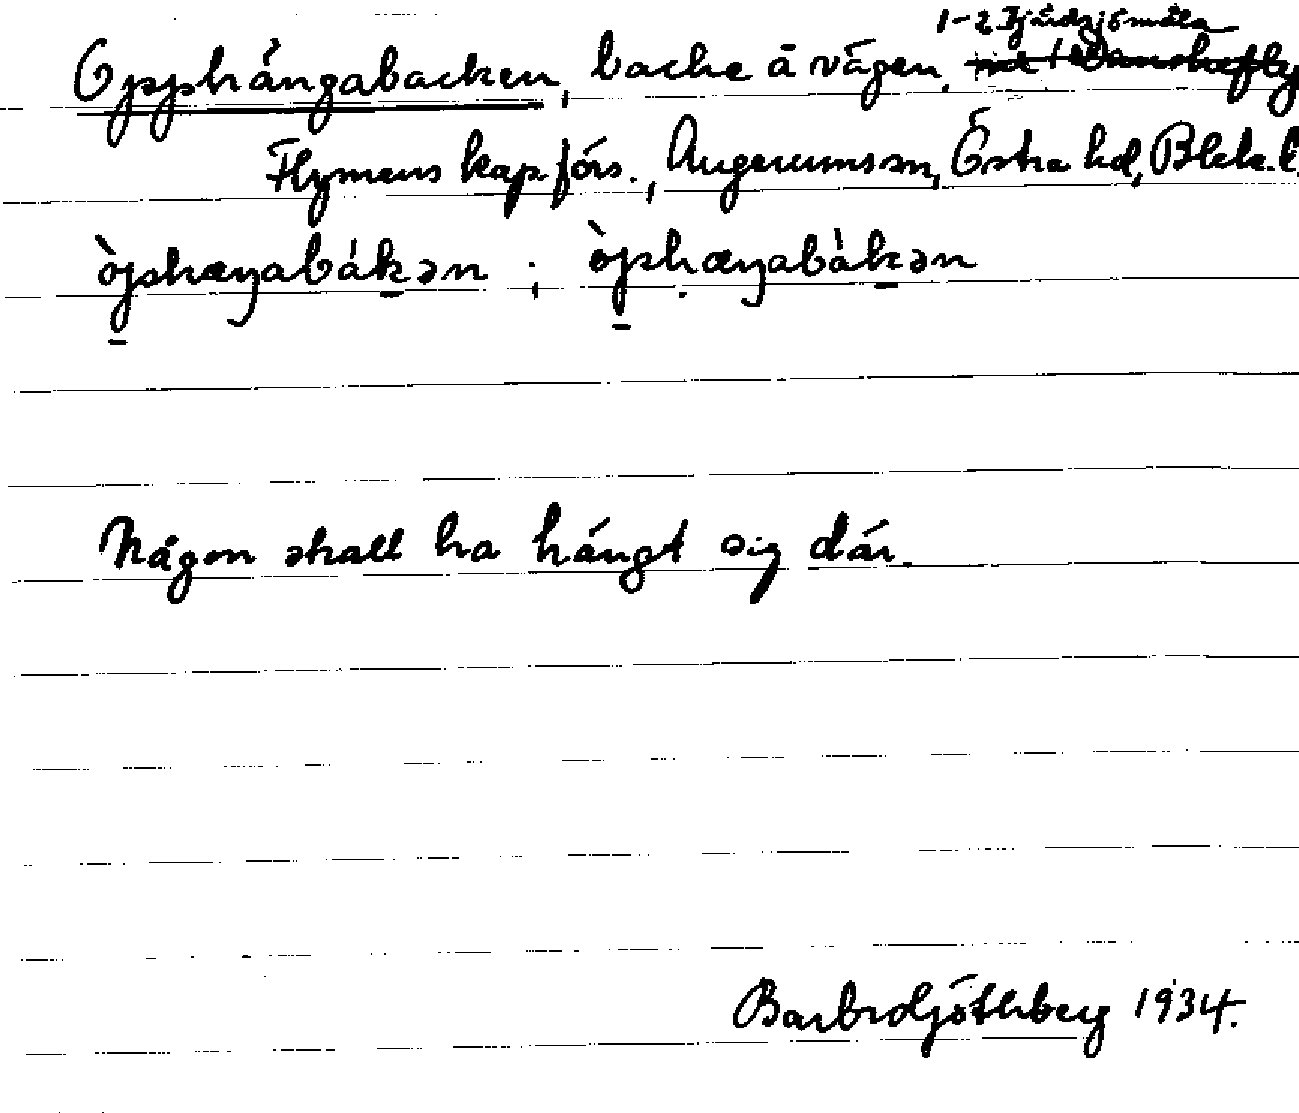 Opphängabacken, backe å vägen. 1-2 Fjärdsjömåla
Flymens kap.förs., Augerums sn, Östra hd, Blek. l.
òphæŋabákən ; òphæŋabàkən
Någon skall ha hängt sig där.
Barbro Götherberg 1934.